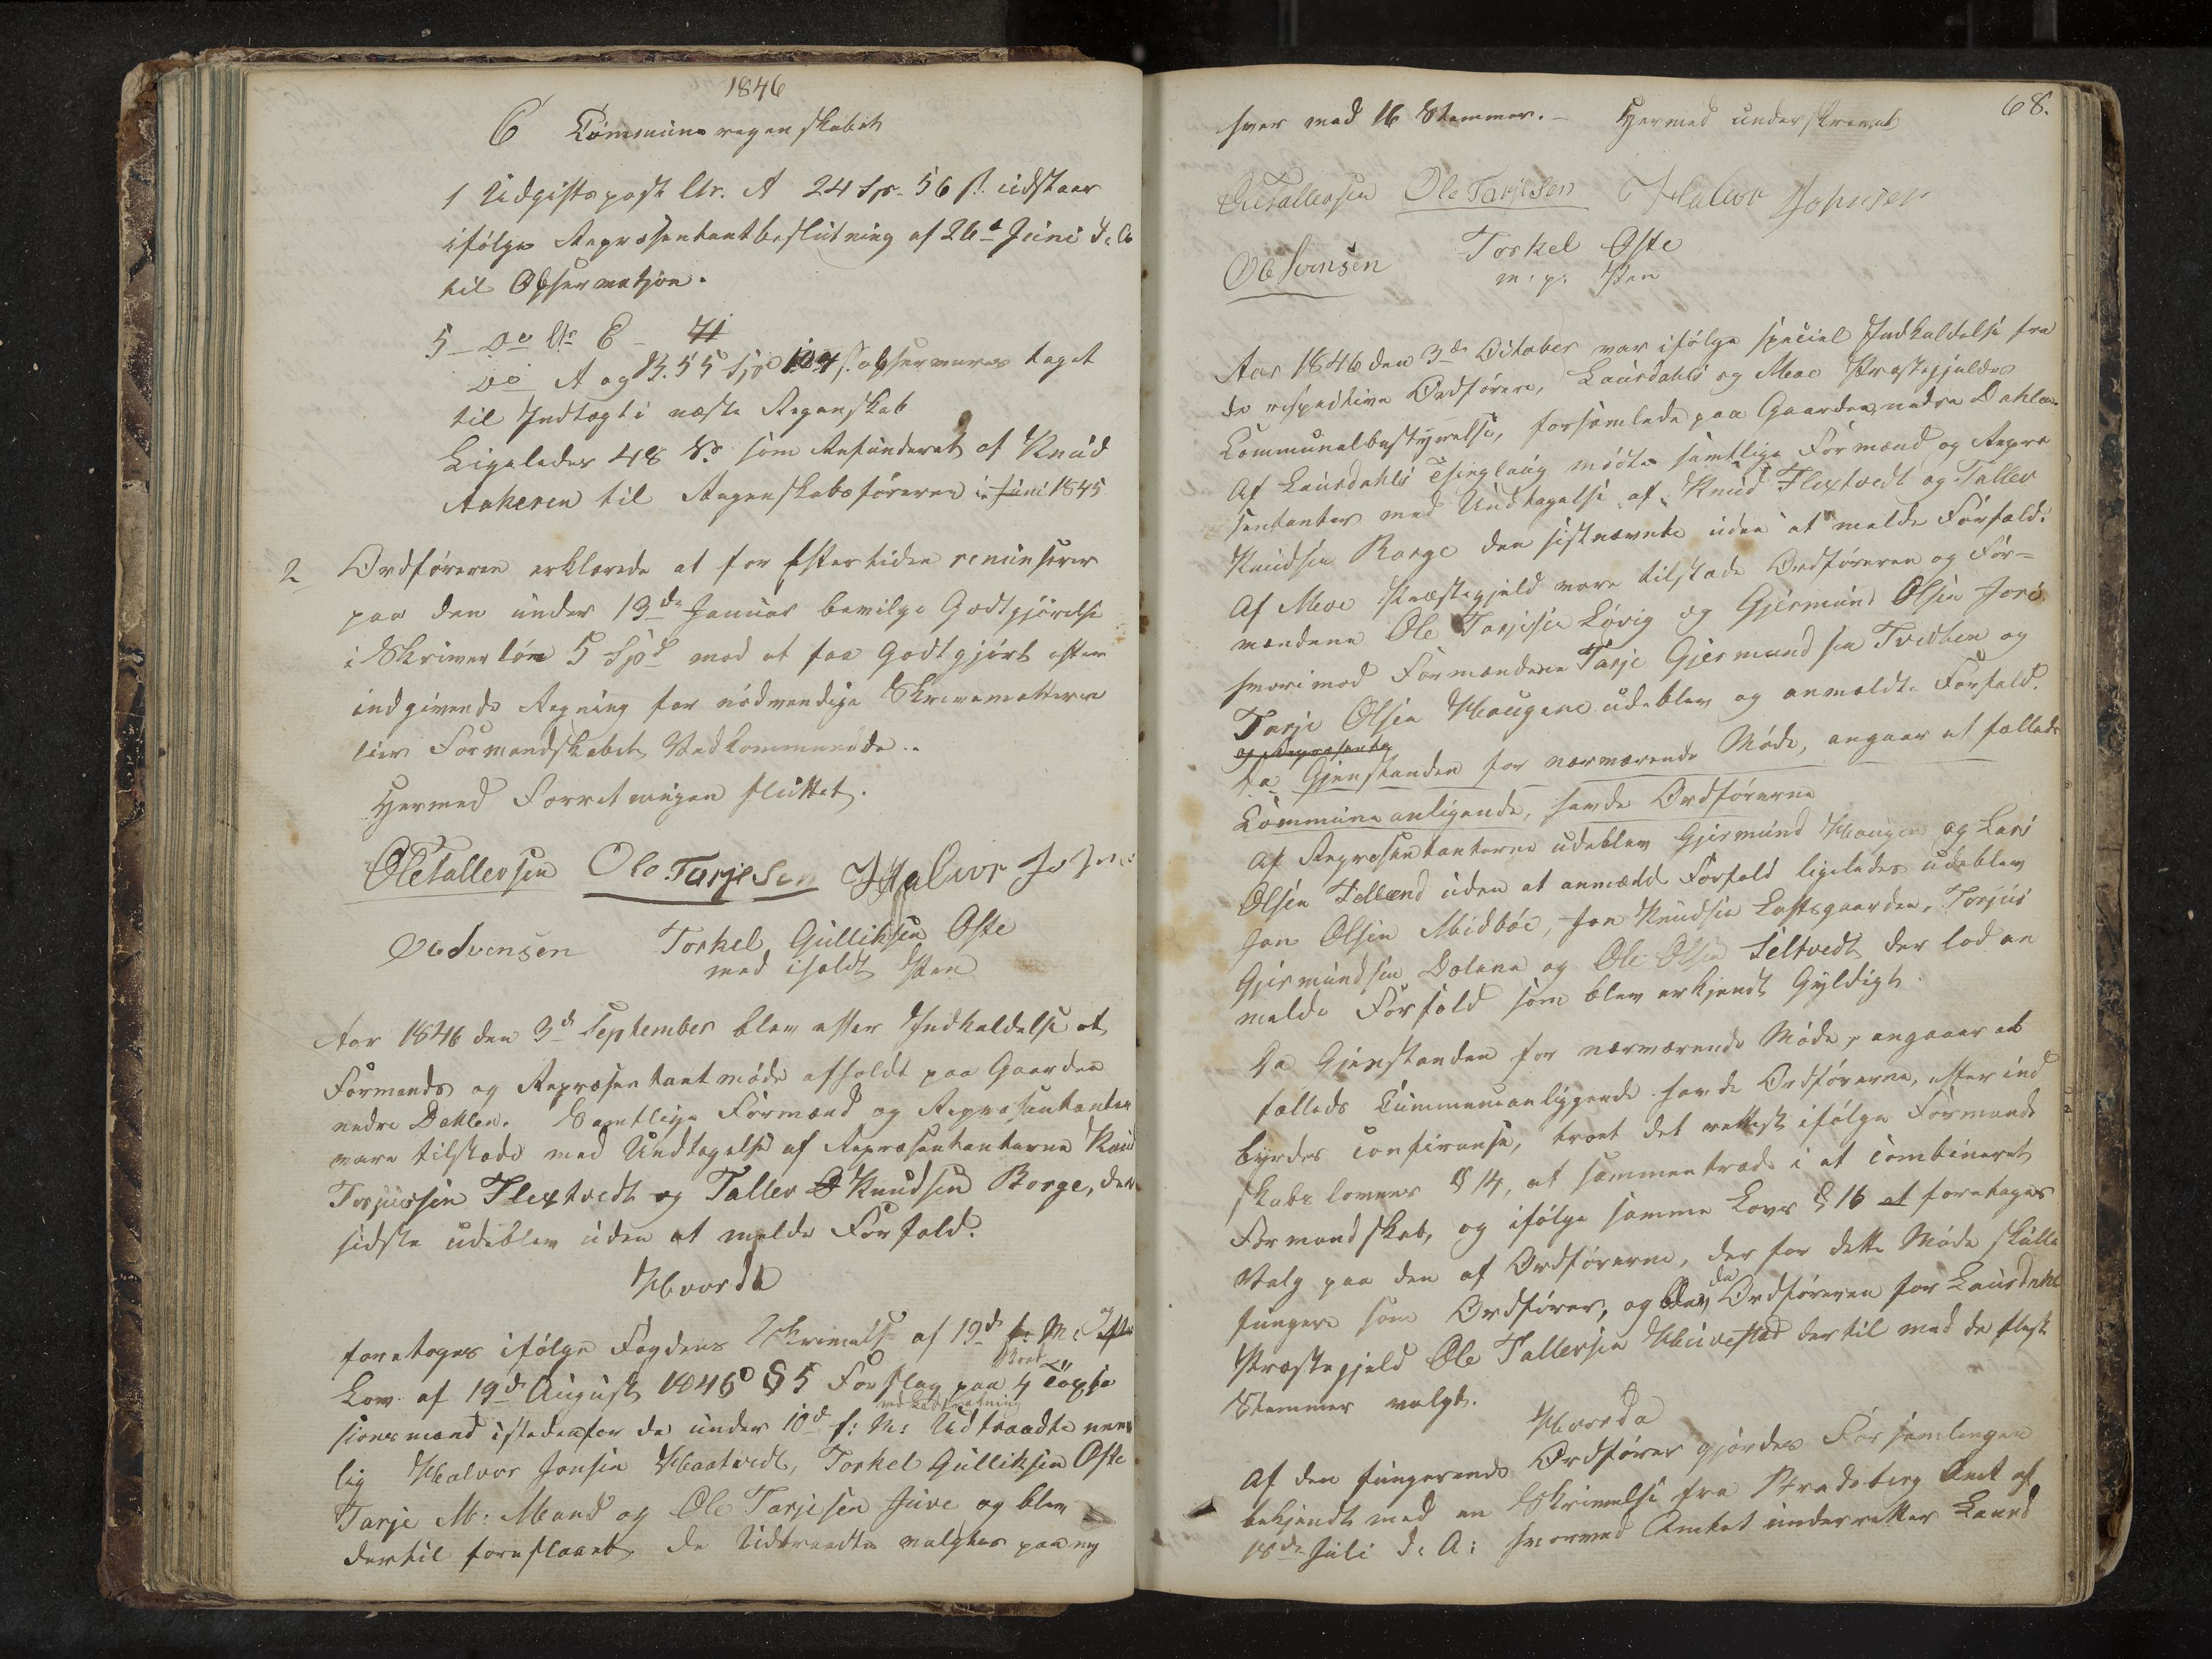 1846
6 Commune regenskabet
1 Udgiftspost Ltr. A 24 Spd. 56 s. udstaar
ifølge Repræsentantbeslutning af 26de Juni d. A
til Observation.
5 – Do Ltr E – 71
Do A og B. 55 Spd 104 s. observeres taget
til Indtægt i næste Regenskab
Ligeledes 48 s. som Refunderet af Knud
Aakeren til Regenskabsføreren in Juni 1845
2 Ordføreren erklærede at for Eftertiden renunserer
paa den under 19de Januar bevilge Godtgjørelse
i Skriverløn 5 Spd mod at faa Godtgjørt efter
indgivende Regning for nødvendige Skrivematteria
lier Formandskabets Vedkommende..
Hermed Forretningen sluttet.
Ole Tallevsen Ole Tarjesen Halvor John
Ole Svensen Torkel Gulliksen Ofte
med iholdt Pen
Aar 1846 den 3de September blev efter Indkaldelse et
Formands og Repræsentantmøde afholdt paa Gaarden
nedre Dahlen. Samtlige Formænd og Repræsentanter
vare tilstæde med Undtagelse af Repræsentanterne Knud
Torjussen Flextvedt og Tallev O Knudsen Borge, den
sidste udeblev uden at melde Forfald.
Hvorda
foretoges ifølge Fogdens Skrivelse af 19de f. M: Efter
Lov af 19de August 1845 § 5 Forslag paa 4 Taxa
sionsmænd istedenfor de under 10de f: M: ved Lodtrækning Udtraadte nem
lig Halvor Jonsen Haatvedt, Torkel Gulliksen Ofte
Tarje M: Moand og Ole Tarjesen Juve og blev
dertil foreslaaet de Udtraadte valgtes paa ny
68.
hver med 16 Stemmer. – Hermed underskrevet
Ole Tallevsen Ole Tarjesen Halvor Johnsen
Ole Svensen Torkel Ofte
m: p: Pen
Aar 1846 den 3de October var ifølge special Indkaldelse fra
de respective Ordførere, Laurdahls og Moe Præstegjældes
Communalbestyrelse, forsamlede paa Gaarden nedre Dahlen.
Af Laurdahls Thinglaug mødte samtlige Formænd og Repræ
sentanter med Undtagelse af Knud Flextvedt og Tallev
Knudsen Borge den sistnævnte uden at melde Forfald.
Af Moe Præstegjeld vare tilstæde Ordføreren og For=
mændene Ole Tarjesen Løvig og Gjermund Olsen Jore
hvorimod Formændene Tarje Gjermundsen Tvedten og
Tarje Olsen Haugene udeblev og anmældte Forfald.
og Repræsenta
Da Gjenstanden for nærværende Møde, angaar et fælleds
Commune anligende, havde Ordførerne
Af Repræsentanterne udeblev Gjermund Haugen og Lars
Olsen Felland uden at anmælde Forfald ligeledes udeblev
Jon Olsen Midbøe, Jon Knudsen Loftsgaarden, Torjus
Gjermundsen Dolene og Ole Olsen Seltvedt der lod an
melde Forfald som blev erkjendt Gyldigt.
Da Gjenstanden for nærværende Møde, angaaer et
fælleds Communeanliggende havde Ordførerne, efter ind
byrdes Conferense, troet det rettest ifølge Formands
skabs lovens § 14, at sammentræde i et Combineret
Formandskab, og ifølge samme Lovs § 16 at foretages
Valg paa den af Ordførerne, der for dette Møde skulle
fungere som Ordfører, og blev da Ordføreren for Laurdahl
Præstegjeld Ole Tallevsen Huvestad dertil med de fleste
Stemmer valgt.
Hvorda
Af den fungerende Ordfører gjordes Forsamlingen
bekjendt med en Skrivelse fra Bradsberg Amt af
18de Juli d: A: hvorved Amtet underretter Laurd